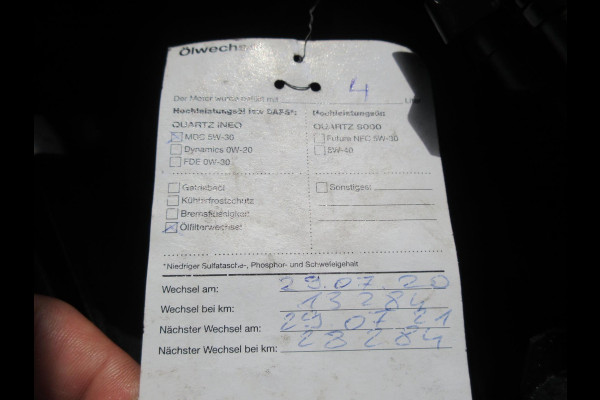 Ölwechs
Der Motor wurde gefüllt mit 4 Liter
Hochleistungsöl low SAPS*: Hochleistungsöl:
QUARTZ INEO QUARTZ 9000
MDC 5W-30 Future NFC 5W-30
Dynamics 0W-20 5W-40
FDE 0W-30
Getriebeöl Sonstiges:
Kühlerfrostschutz
Bremsflüssigkeit
Ölfilterwechsel
*Niedriger Sulfatasche-, Phosphor- und Schwefelgehalt
Wechsel am: 29.07.20
Wechsel bei km: 13284
Nächster Wechsel am: 29 07 21
Nächster Wechsel bei km: 28284